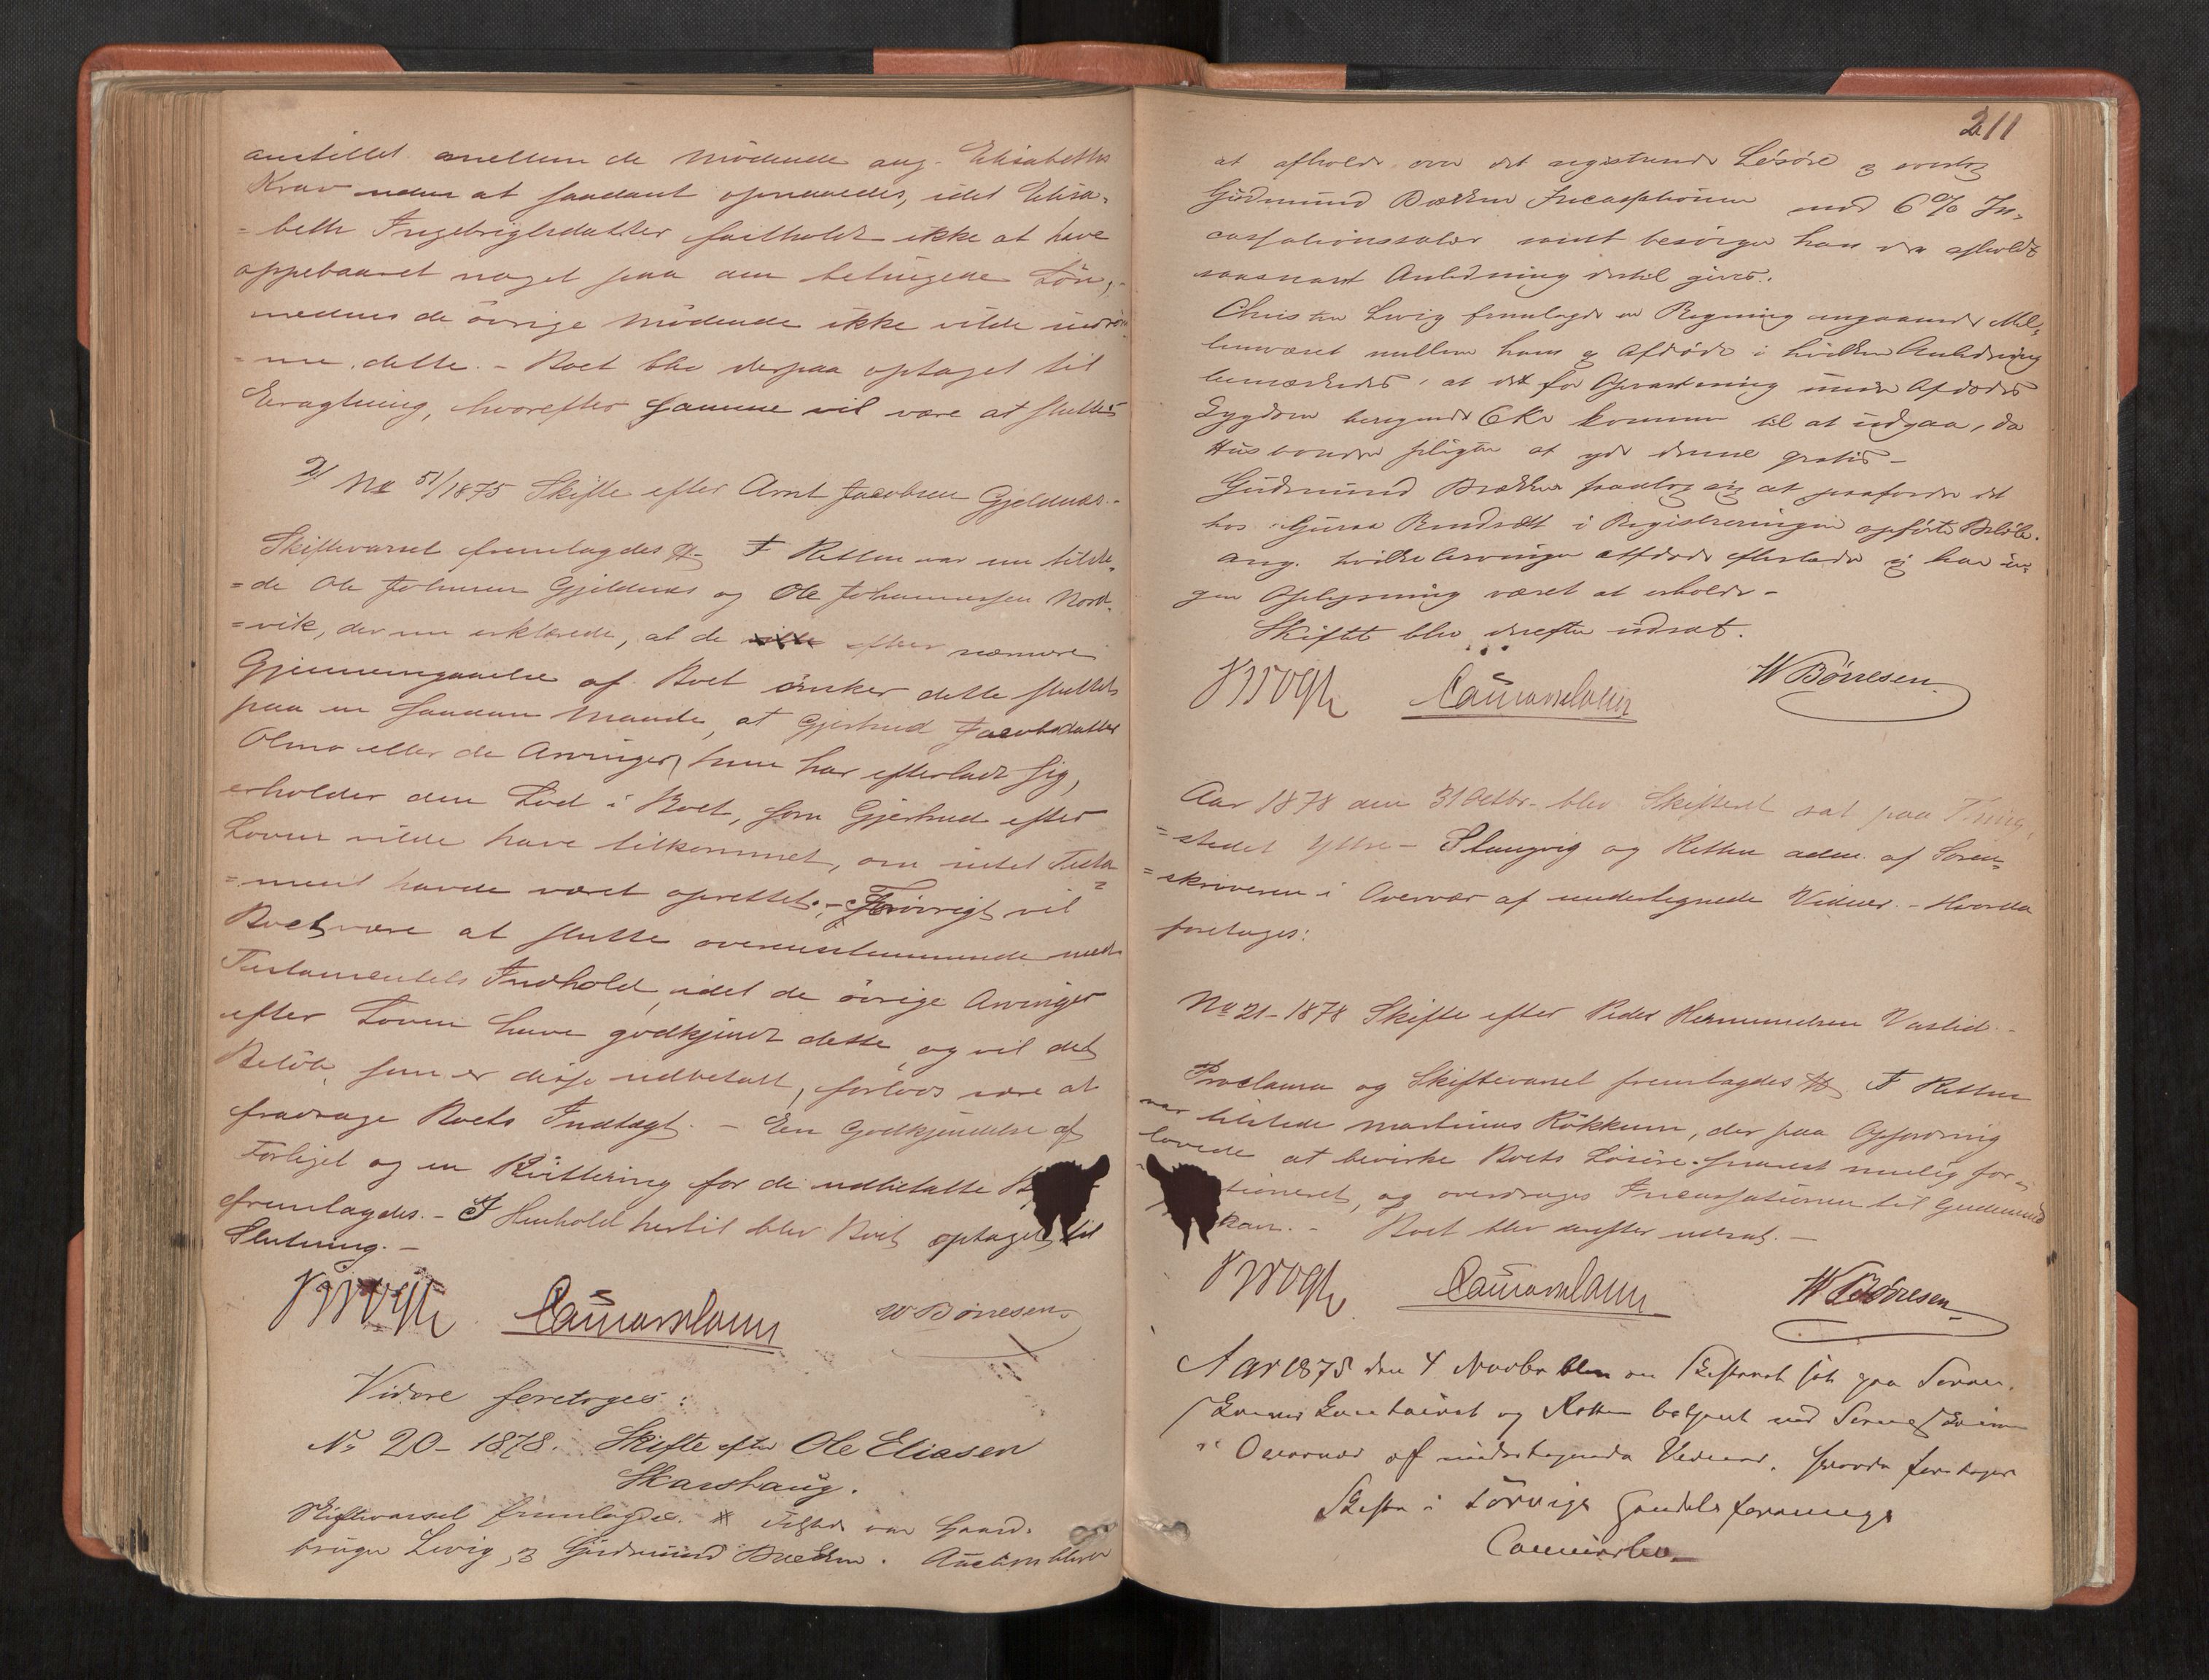 anstillet mellem de Mødende ang. Elisabeths
Krav uden at saadant opnaaedes, idet Elisa-
=beth Ingebrigtsdatter fastholdt ikke at have
oppebaaret noget paa den betingede Løn,
medens de øvrige Mødende ikke vilde indrøm
=me dette. - Boet blev derpaa optaget til
Eragtning, hvorefter Samme vil være at slutte
2/ No 51/1875 Skifte efter Arnt Jacobsen Gjeldnæs.-
Skiftevarsel fremlagdes # I Retten var nu tilste-
=de Ole Johnsen Gjeldnæs og Ole Johannessen Nord-
=vik, der nu erklærede, at de efter nærmere
Gjennemgaaelse af Boet ønsker dette sluttet
paa en saadan Maade, at Gjertrud Jacobsdatter
Olmo eller de Arvinger, hun har efterladt sig,
erholder den Lod i Boet, som Gjertrud efter
Loven vilde have tilkommet, om intet Testa
=ment havde været oprettet. - Forøvrigt vil
Boet være at slutte overensstemmende med
Testamentets Indhold, idet de øvrige Arvinger
efter Loven have godkjendt dette, og vil det
Beløb, som er disse udbetalt, forlods være at
fradrage Boets Indtægt. - En Godkjendelse af
Forliget og en Kvittering for de udbetalte
fremlagdes. - I Henhold hertil blev Boet optaget til
Slutning. -
W Børresen
Videre foretoges:
No 20 - 1878. Skifte efter Ole Eliasen
Skarshaug.
Skiftevarsel fremlagdes. # Tilstede var Gaard-
bruger Lervig og Gudmund Brækken. Auction bliver
211
at afholde over det registrerede Løsøre og overtog
Gudmund Brækken Incassationen mod 6% In-
cassationssalær samt besørger han den afholdt
saasnart Anledning dertil gives.
Christen Lervig fremlagde en Regning angaaende Mel-
lemværet mellem ham og Afdøde i hvilken Anledning
bemærkedes, at det for Opvartning under Afdødes
Sygdom beregnede 6 Kr kommer til at udgaa, da
Husbonden pligter at yde denne gratis -
Gudmund Brækken paatog sig at paafordre det
hos Guraa Bendsæt i Registreringen opførte Beløb.
Ang. hvilke Arvinger Afdøde efterlader sig har in-
gen Oplysning været at erholde -
Skiftet blev derefter udsat.
W Børresen
Aar 1878 den 31 Octbr. blev Skifteret sat paa Thing-
=stedet Yttre - Stangvig og Retten adm. af Soren-
=skriveren i Overvær af undertegnede Vidner. - Hvorda
foretages:
No 21 - 1878 Skifte efter Peder Hermundsen Vaslid. -
Proclama og Skiftevarsel fremlagdes # I Retten
var tilstede Martinus Røkkum, der paa Opfordring
lovede at bevirke Boets Løsøre snarest mulig for-
tioneret, og overdroges Incassationen til Gudmund
ken. - Boet blev derefter udsat. -
W Børresen
Aar 1878 den 4 Novbr blev en Skifteret sat paa Soren-
skriver Contoiret og Retten betjent ved Sorenskriveren
i Overvær af undertegnede Vidner. Hvorda foretages
Skifte i Sørvigs Handelsforenings